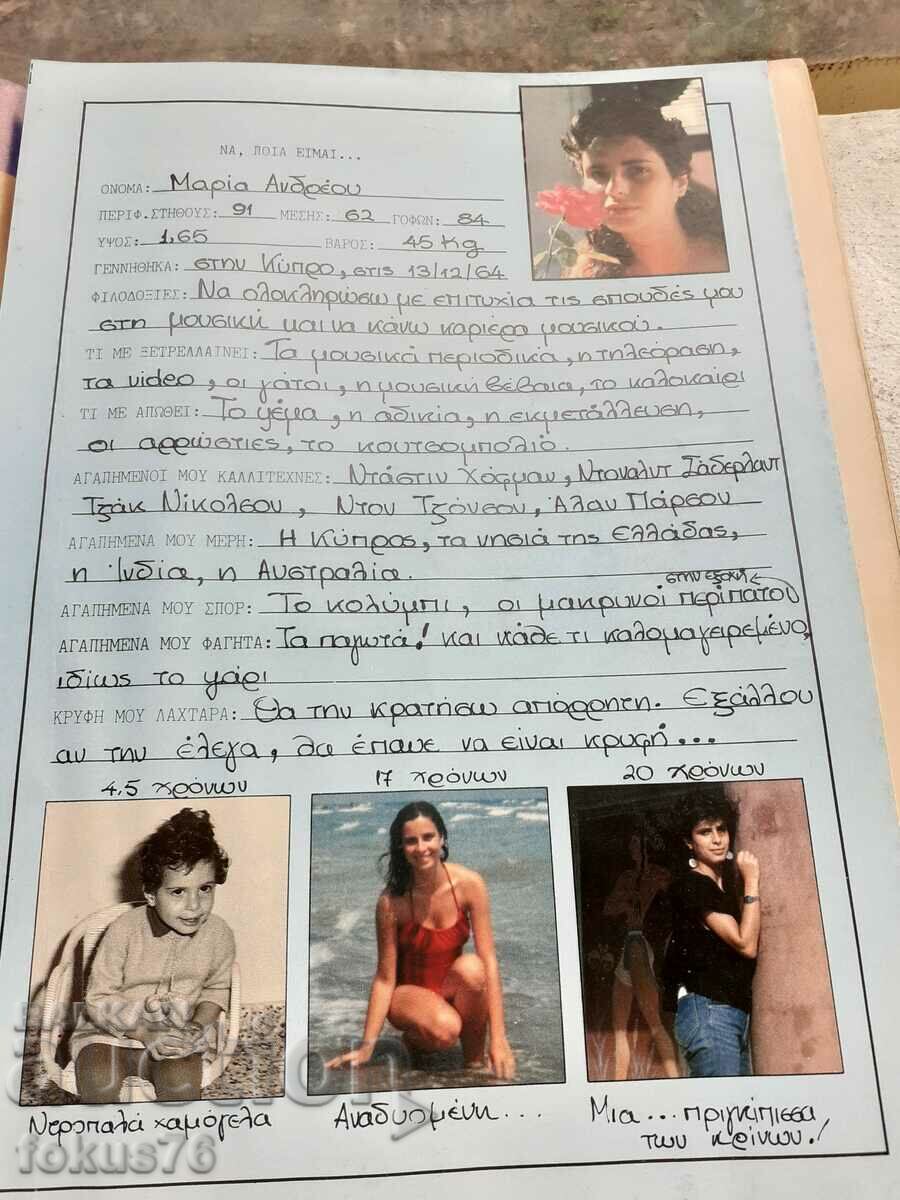 ΝΑ, ΠΟΙΑ ΕΙΜΑΙ...
ΟΝΟΜΑ: Μαρία Ανδρέου
ΠΕΡΙΦ.ΣΤΗΘΟΥΣ: 91 ΜΕΣΗΣ: 62 ΓΟΦΩΝ: 84
ΥΨΟΣ: 1.65 ΒΑΡΟΣ: 45 Kg
ΓΕΝΝΗΘΗΚΑ: στην Κύπρο, στις 13/12/64
ΦΙΛΟΔΟΞΙΕΣ: Να ολοκληρώσω με επιτυχία τις σπουδές μου
στη μουσική και να κάνω καριέρα μουσικού.
ΤΙ ΜΕ ΞΕΤΡΕΛΛΑΙΝΕΙ: Τα μουσικά περιοδικά, η τηλεόραση,
τα video, οι γάτοι, η μουσική βέβαια, το καλοκαίρι
ΤΙ ΜΕ ΑΠΩΘΕΙ: Το ψέμα, η αδικία, η εκμετάλλευση,
οι αρρώστιες, το κουτσομπολιό.
ΑΓΑΠΗΜΕΝΟΙ ΜΟΥ ΚΑΛΛΙΤΕΧΝΕΣ: Ντάστιν Χόφμαν, Ντόναλντ Σάδερλαντ
Τζάκ Νίκολσον, Ντον Τζόνσον, Άλαν Πάρσον
ΑΓΑΠΗΜΕΝΑ ΜΟΥ ΜΕΡΗ: Η Κύπρος, τα νησιά της Ελλάδας,
η Ινδία, η Αυστραλία.
στην εξοχή
ΑΓΑΠΗΜΕΝΑ ΜΟΥ ΣΠΟΡ: Το κολύμπι, οι μακρυνοί περίπατοι
ΑΓΑΠΗΜΕΝΑ ΜΟΥ ΦΑΓΗΤΑ: Τα παγωτά! και κάθε τι καλομαγειρεμένο,
ιδίως το ψάρι
ΚΡΥΦΗ ΜΟΥ ΛΑΧΤΑΡΑ: Θα την κρατήσω απόρρητη. Εξάλλου
αν την έλεγα, θα έπαυε να είναι κρυφή...
4,5 χρόνων
17 χρόνων
20 χρόνων
Ντροπαλά χαμόγελα
Αναδυομένη...
Μια... πριγκίπισσα
των κρίνων!
BALKAN
auction
fokus76